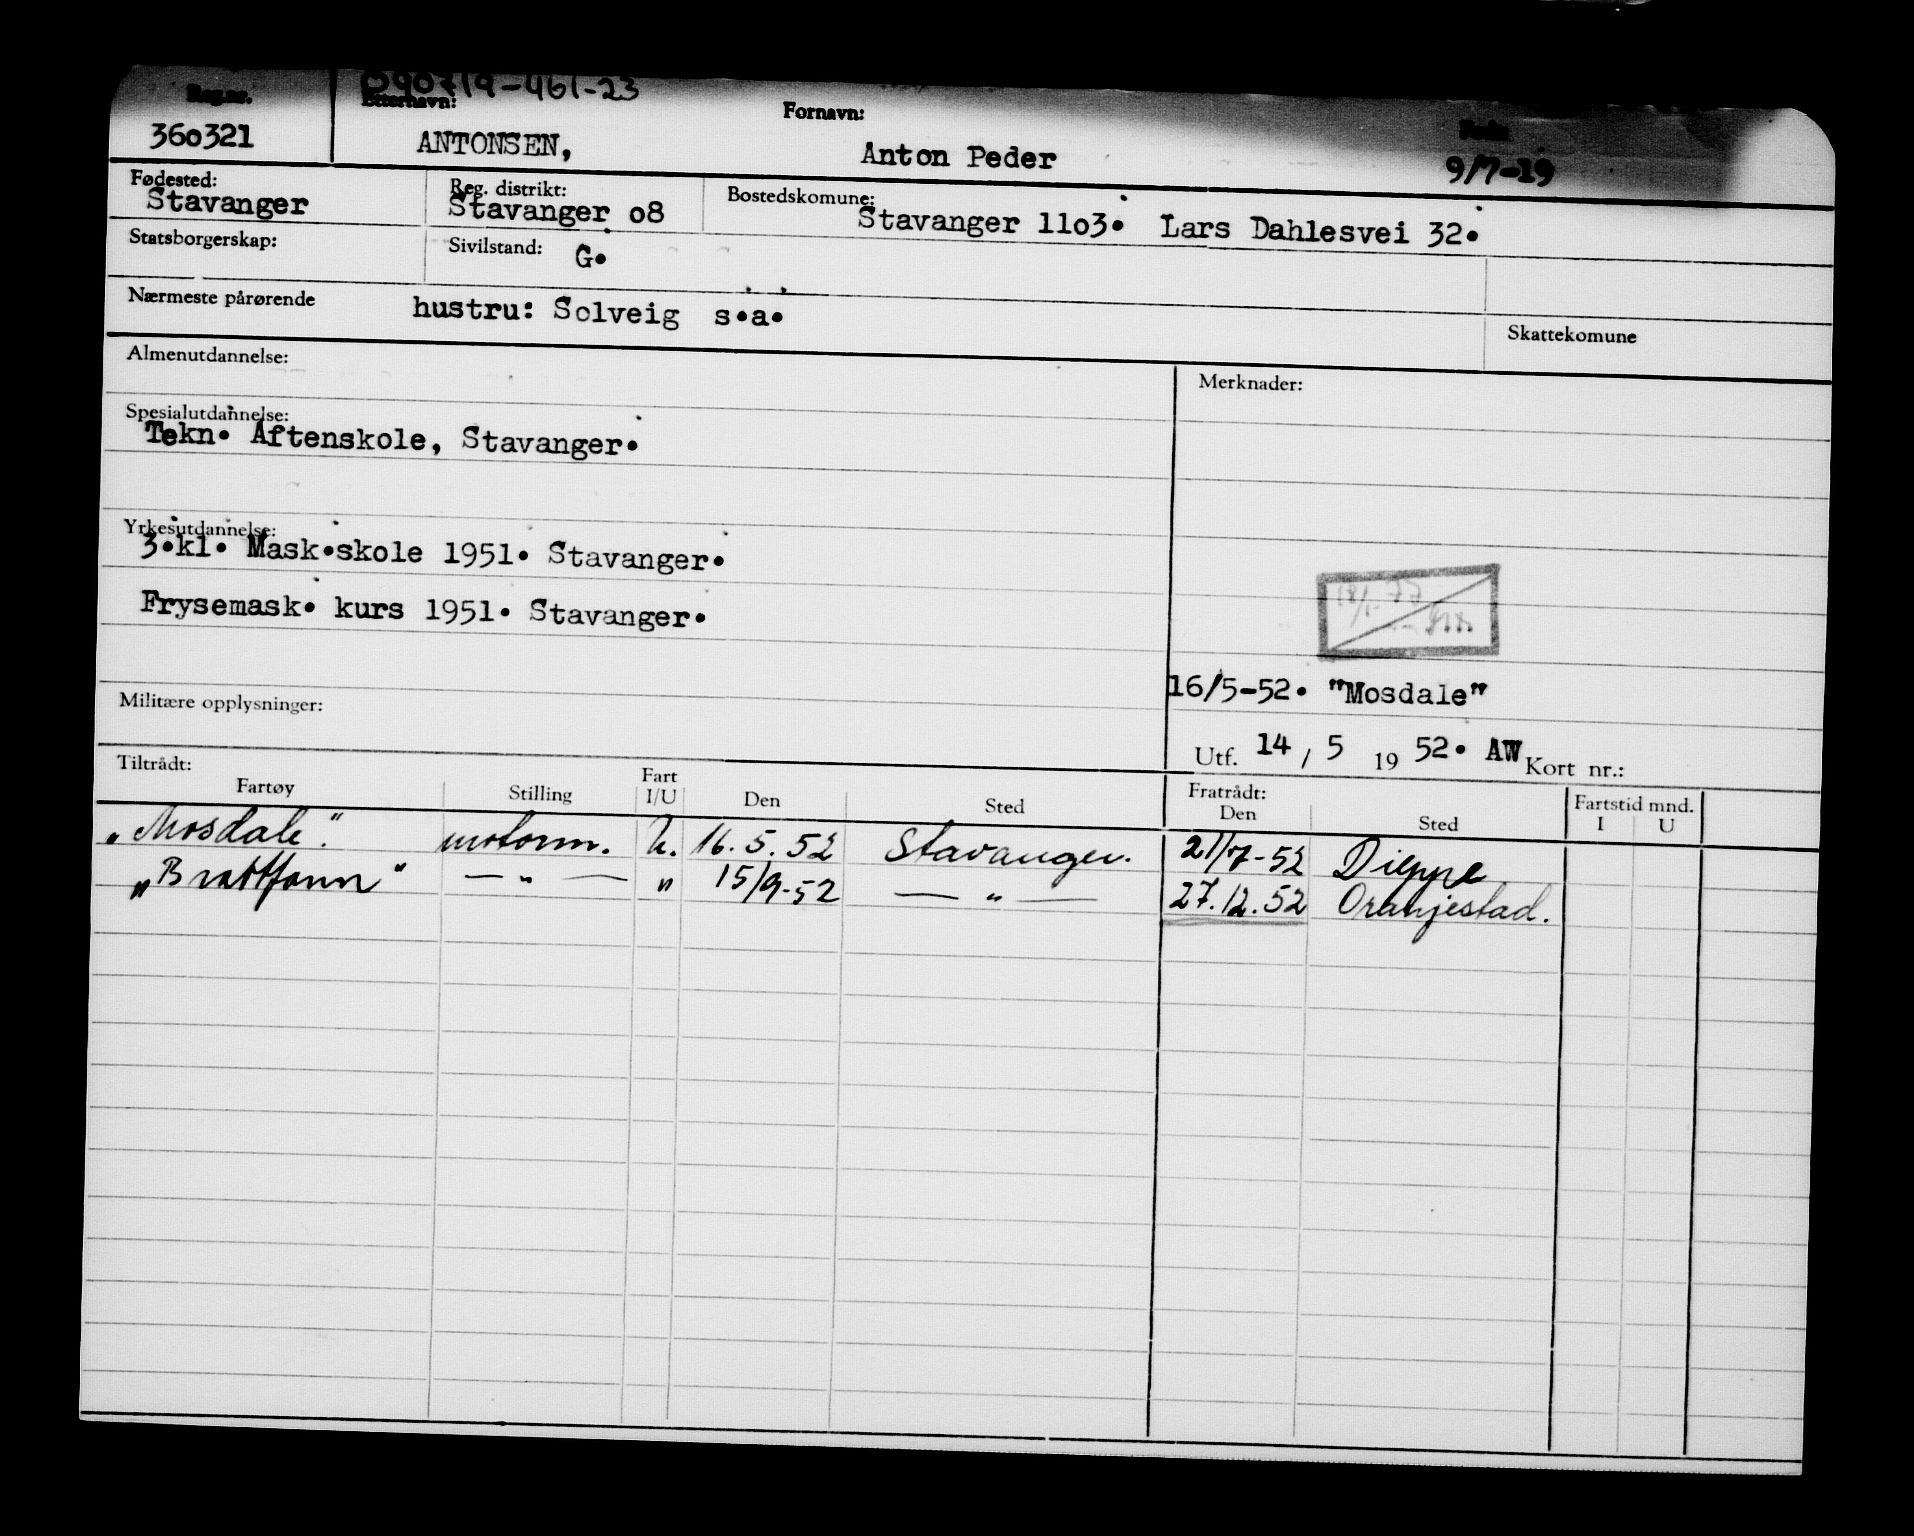 090719-461-23
Reg.nr. Etternavn: Fornavn: Født
360321 ANTONSEN, Anton Peder 9/7-19
Fødested: Reg. distrikt: Bostedskomune:
Stavanger Stavanger o8 Stavanger 11o3. Lars Dahlesvei 32.
Statsborgerskap: Sivilstand: G.
Nærmeste pårørende hustru: Solveig s.a.
Skattekomune
Almenutdannelse: Merknader:
Spesialutdannelse:
Tekn. Aftenskole, Stavanger.
Yrkesutdannelse:
3.kl. Mask.skole 1951. Stavanger.
Frysemask. kurs 1951. Stavanger.
16/5-52. "Mosdale"
Militære opplysninger:
Utf. 14 / 5 19 52. AW Kort nr.:
Tiltrådt: Fratrådt: Fartstid mnd.
Fartøy Stilling Fart I/U Den Sted Den Sted I U
"Mosdale." motorm. U. 16.5.52 Stavanger. 21/7-52 Dieppe
"Brattfonn" — " — " 15/9-52 — " — 27.12.52 Oranjestad.